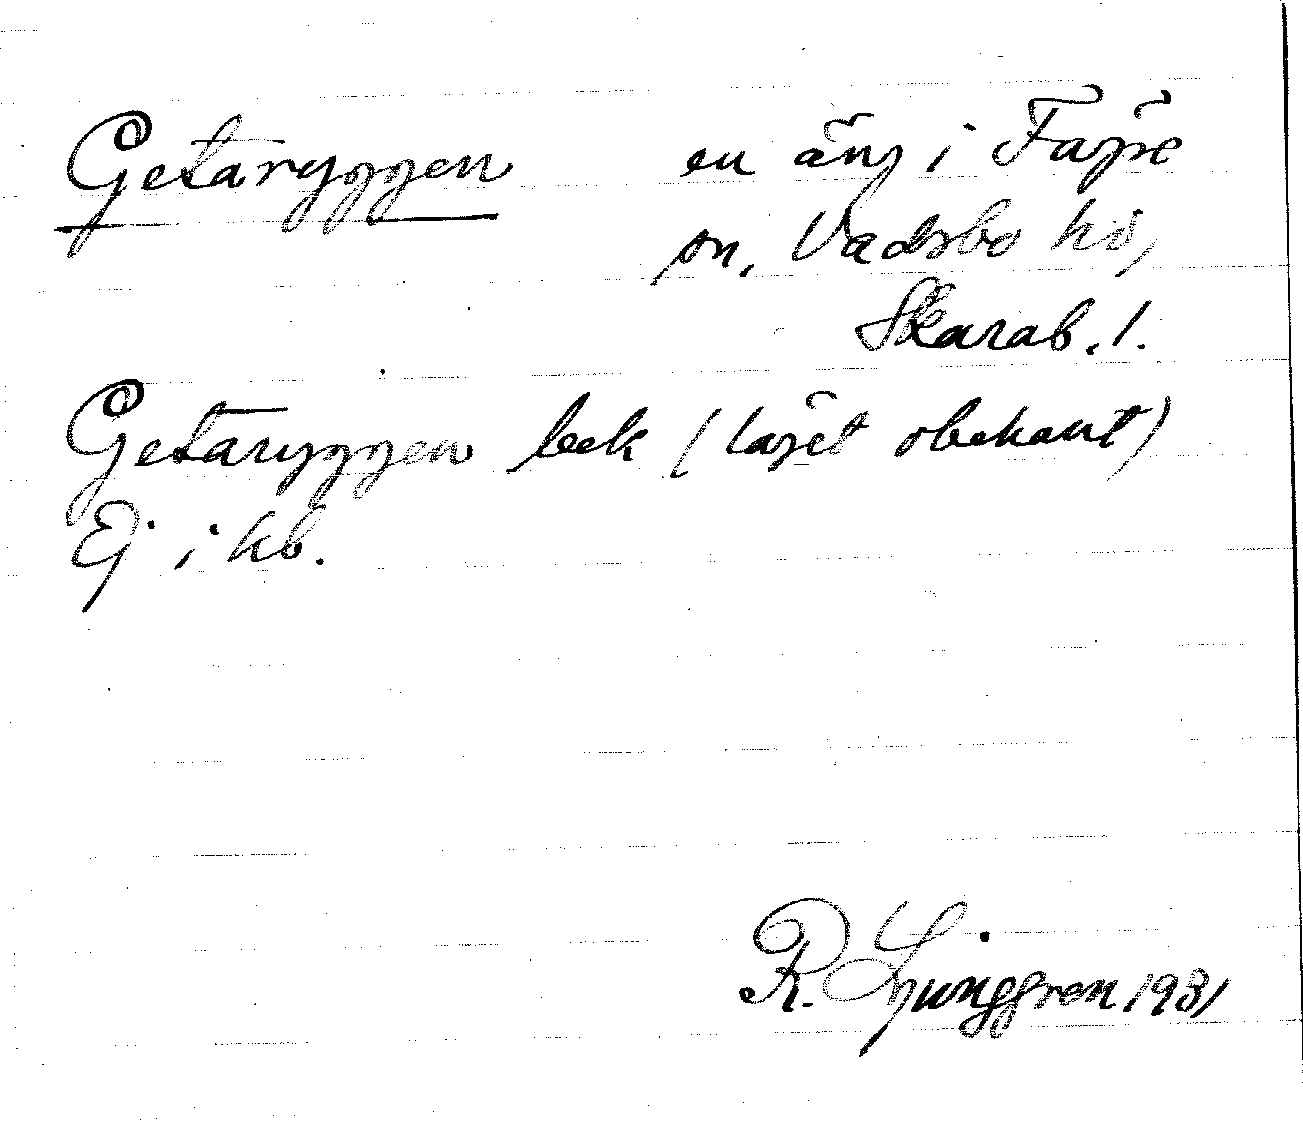 Getaryggen en äng i Fägre
sn, Vadsbo hd,
Skarab. l.
Getaryggen bek (läget obekant)
Ej i kb.
R. Ljunggren 1931